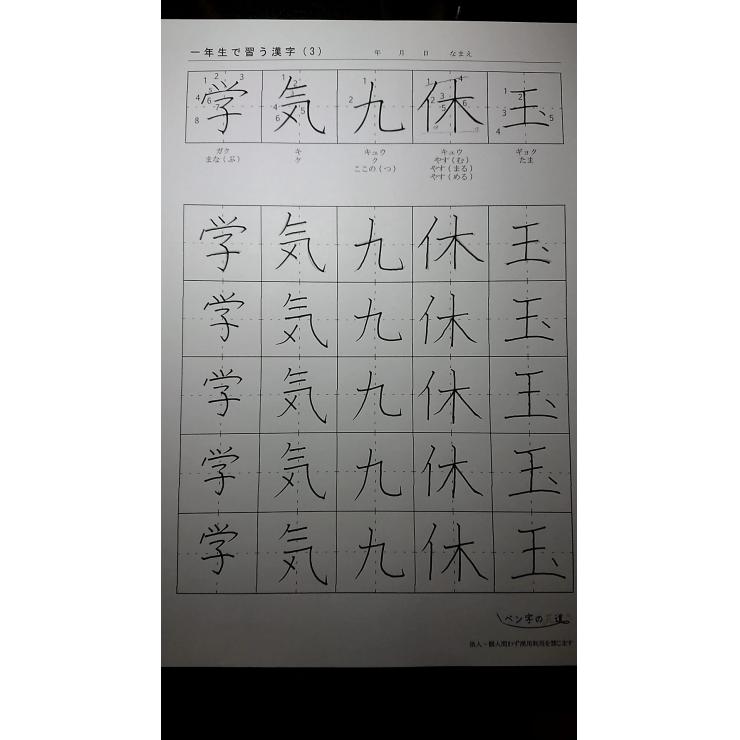 一年生で習う漢字(3) 年 月 日 なまえ
学 気 九 休 玉
ガク キ キュウ キュウ ギョク
まな(ぶ) ケ ク やす(む) たま
ここの(つ) やす(まる)
やす(める)
学 気 九 休 玉
学 気 九 休 玉
学 気 九 休 玉
学 気 九 休 玉
学 気 九 休 玉
ペン字の道
法人・個人問わず商用利用を禁じます